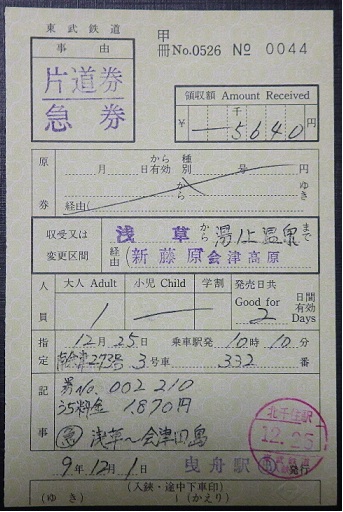 東武鉄道
甲
冊No.0526 No 0044
事由
片道券
急券
領収額 Amount Received
千
¥ 5640円
原券
月 日 から有効 種別 号 円
から ゆき
経由(
収受又は変更区間
浅草から湯ノ上温泉まで
経由(新藤原 会津高原
人員
大人 Adult 小児 Child 学割 発売日共 Good for 日間有効 Days
1 2
指定
12月25日 乗車駅発 10時10分
273号 3号車 332番
記事
No. 002210
料金 1870円
急 浅草〜会津田島
9年12月1日 曳舟駅 発行
北千住駅
12.25
(入鋏・途中下車印)
(ゆき) (かえり)